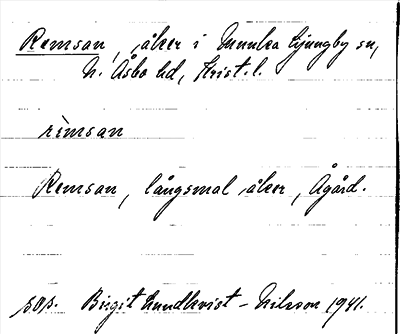 Remsan, åker i Munka Ljungby sn,
N. Åsbo hd, Krist. l.
rèmsan
Remsan, långsmal åker, Ågård.
pop. Birgit Lundkvist - Nilsson 1941.